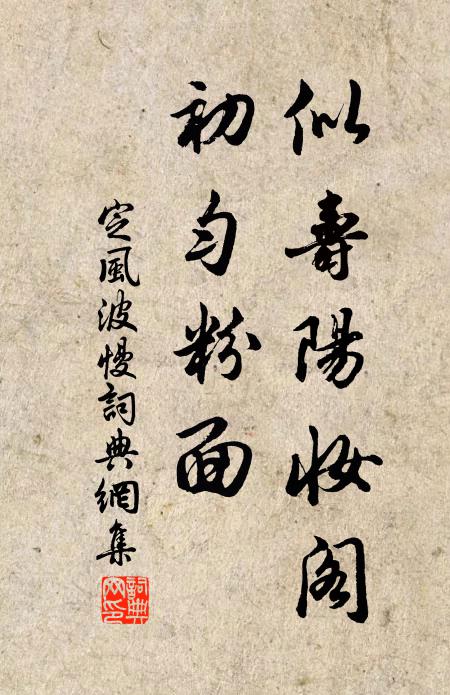 似壽陽妝阁
初匀粉面
定風波慢詞典網集
詞典網印